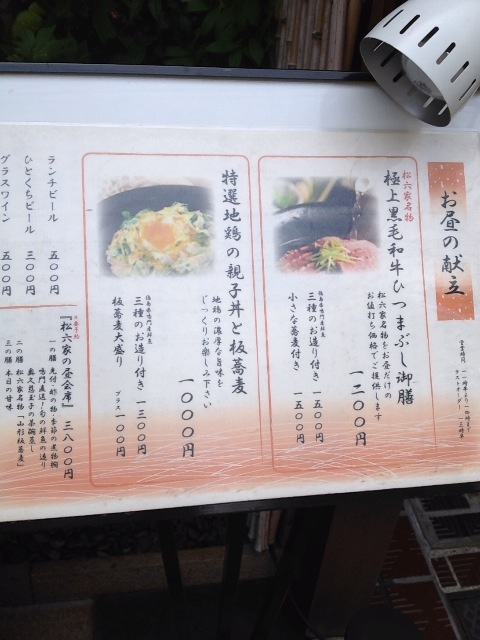 お昼の献立
松六家名物
極上黒毛和牛ひつまぶし御膳
松六家名物をお昼だけの
お値打ち価格でご提供します
一二〇〇円
三種のお造り付き 一五〇〇円
小さな蕎麦付き 一五〇〇円
特選地鶏の親子丼と板蕎麦
地鶏の濃厚な旨味を
じっくりお楽しみ下さい
一〇〇〇円
三種のお造り付き 一三〇〇円
板蕎麦大盛り プラス一〇〇円
ランチビール 五〇〇円
ひとくちビール 三〇〇円
グラスワイン 五〇〇円
『松六家の昼会席』 三八〇〇円
一の膳 先付・酢の物・季節の煮物椀
鳴門直送！旬の鮮魚の造り
奥久慈玉子の茶碗蒸し
二の膳 松六家名物「山形板蕎麦」
三の膳 本日の甘味